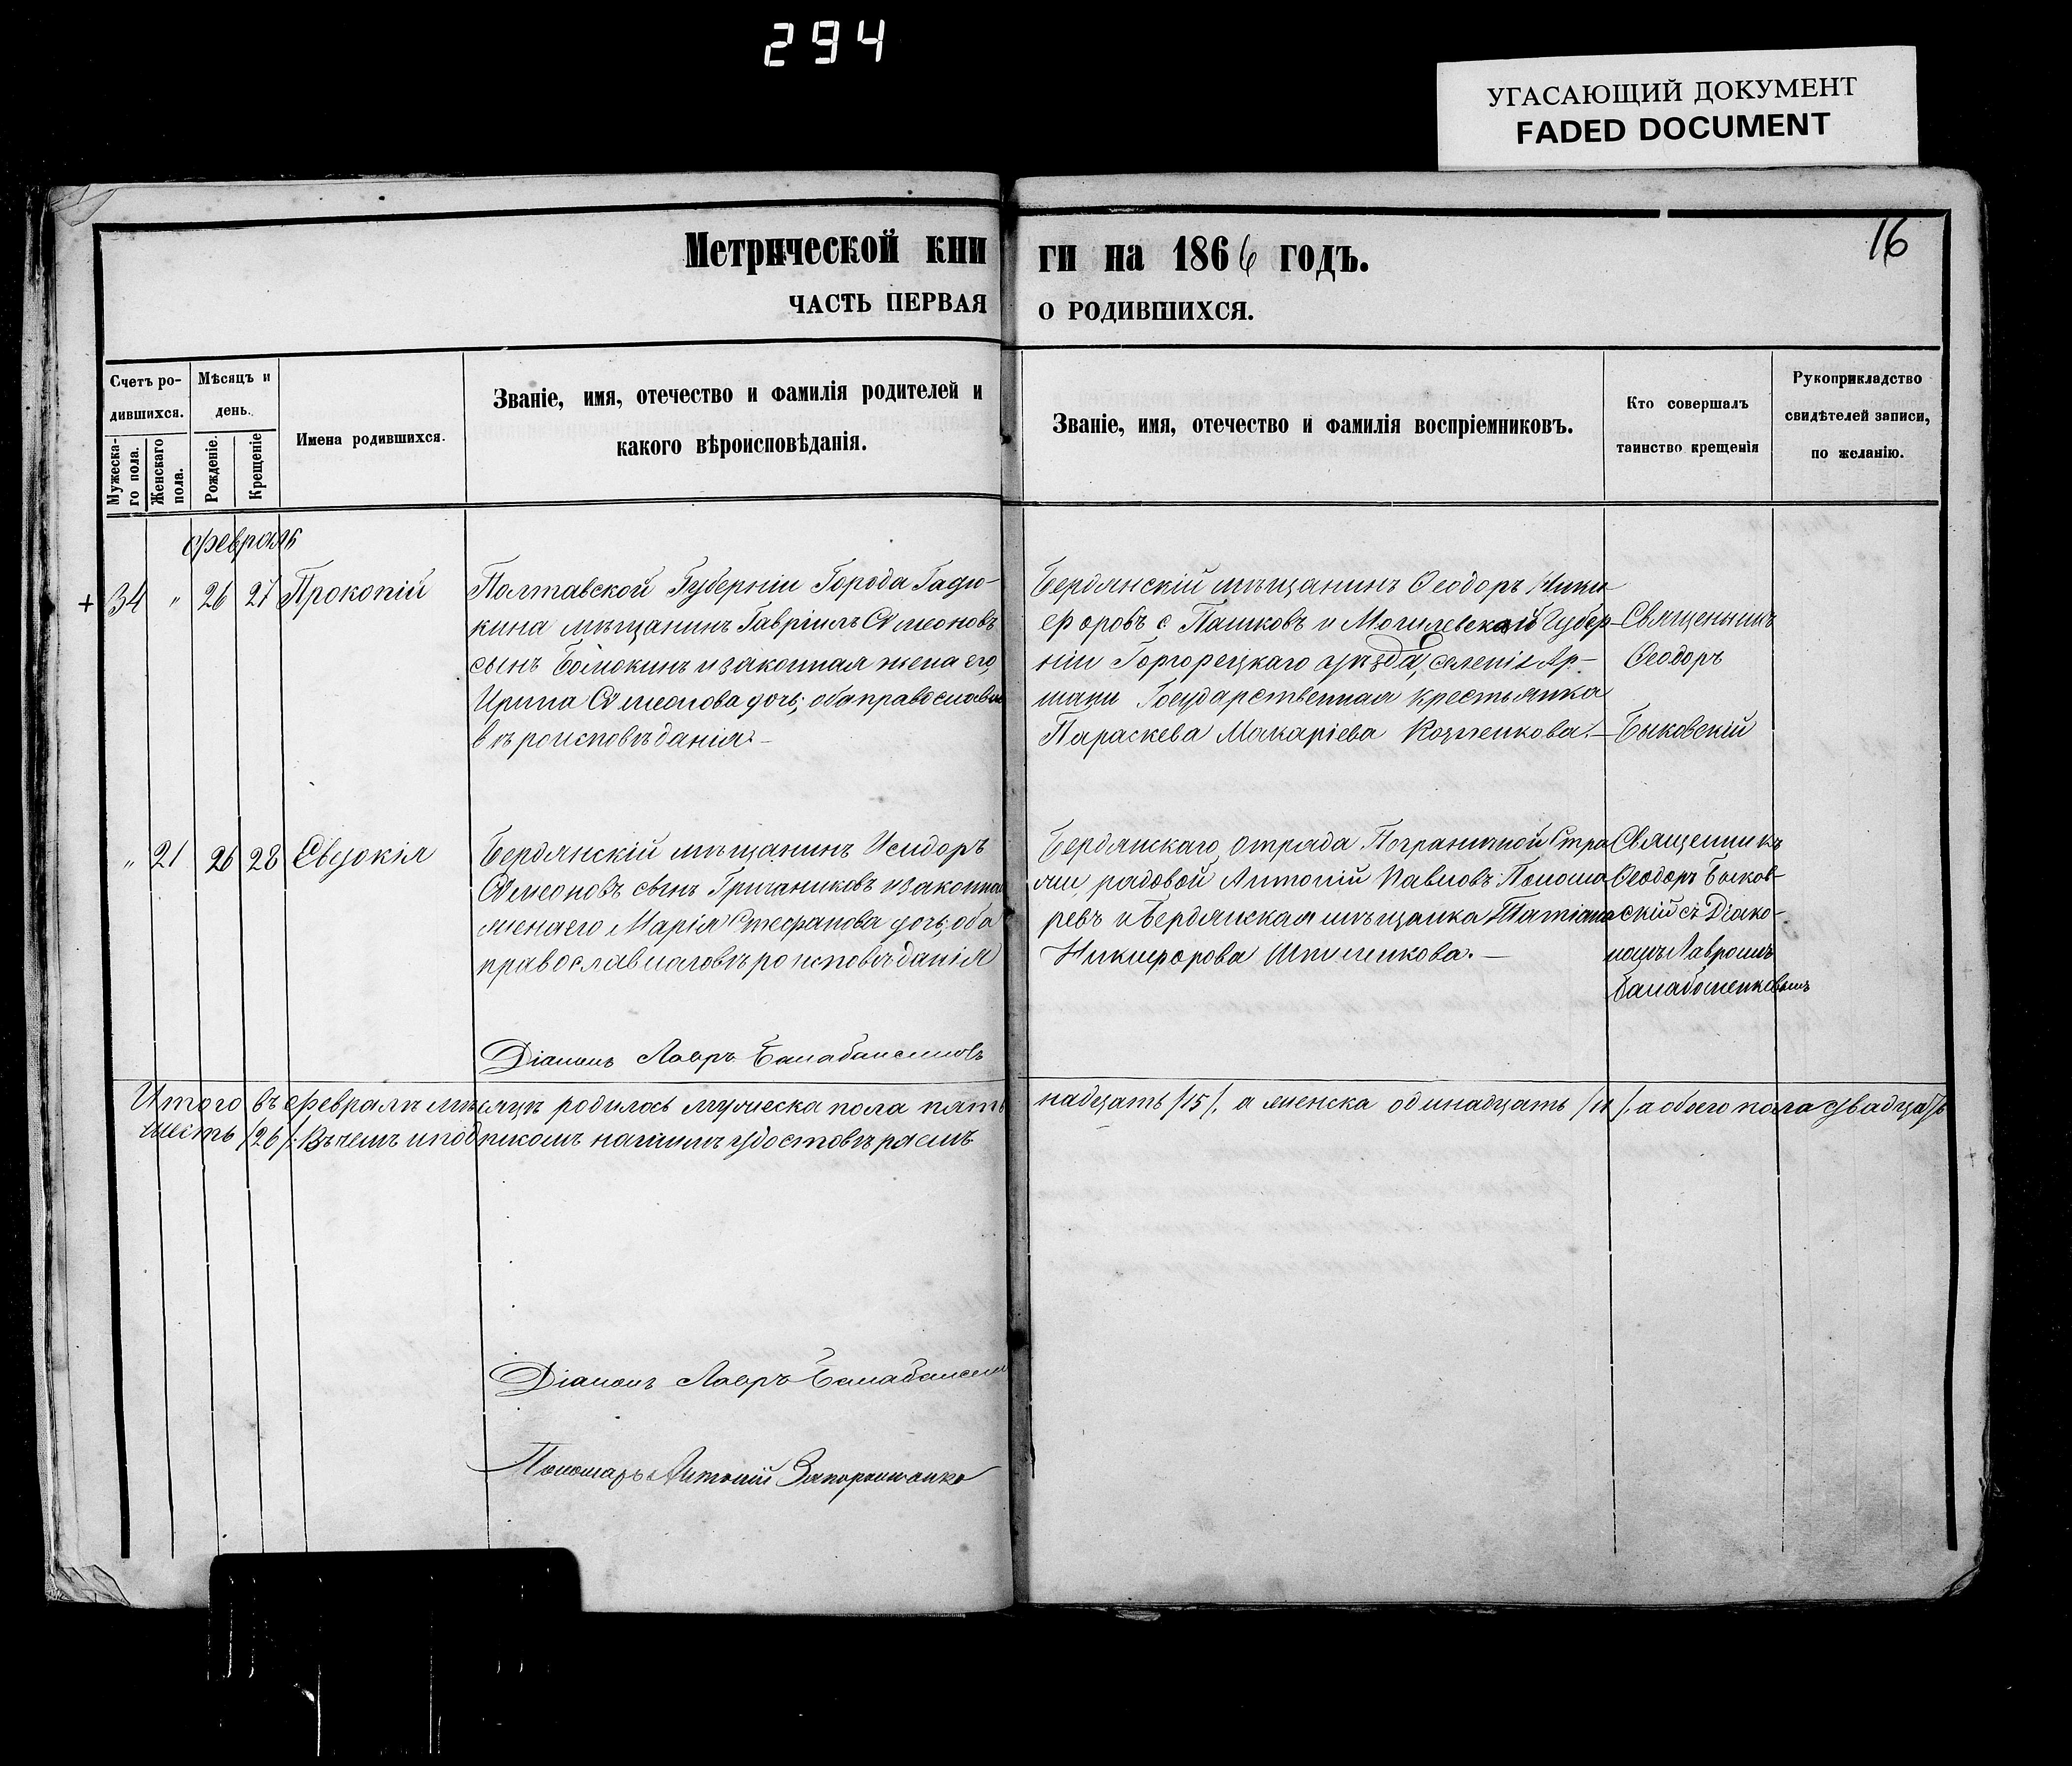 294
УГАСАЮЩИЙ ДОКУМЕНТ
FADED DOCUMENT
16
Метрической кни ги на 1866 годъ.
ЧАСТЬ ПЕРВАЯ О РОДИВШИХСЯ.
Счетъ ро-
дившихся.
Мужеска-
го пола.
Женскаго
пола.
Мѣсяцъ и
день.
Рожденіе.
Крещеніе
Имена родившихся.
Званіе, имя, отечество и фамилія родителей и
какого вѣроисповѣданія.
Званіе, имя, отечество и фамилія воспріемниковъ.
Кто совершалъ
таинство крещенія
Рукоприкладство
свидѣтелей записи,
по желанію.
февраль
+ 34 " 26 27 Прокопій
Полтавской Губерніи Города Гадю-
кина мѣщанинъ Гавріилъ Симеоновъ
сынъ и законная жена его,
Ирина Симеонова дочь; оба православн
вѣроисповѣданія.-
Бердянскій мѣщанинъ Ѳеодоръ Ники
форовъ с. Пашковъ и Могилевской Губер-
ніи Горгорецкаго уѣзда, селенія Ар-
Государственная крестьянка
Параскева Макаріева.-
Священникъ
Ѳеодоръ
Быковскій
" 21 26 28 Евдокія
Бердянскій мѣщанинъ Исидоръ
Симеоновъ сынъ Гричаниковъ и законна
жена его Марія Стефанова дочь; оба
православнаго вѣроисповѣданія
Бердянскаго Отряда Пограничной Стра
жи рядовой Антоній Павловъ Понома
ревъ и Бердянская мѣщанка Татіана
Никифорова.-
Священникъ
Ѳеодоръ Быков-
скій съ Діако-
номъ Лавромъ
Балабаненковымъ
Діаконъ Лавръ Балабаненковъ
Итого въ февралѣ мѣсяцѣ родилось мужеска пола пять надцать /15/, а женска одинадцать /11/, а обоего пола двадцать
шесть /26/. Въ чемъ и подпискомъ нашимъ удостовѣряемъ
Діаконъ Лавръ Балабаненк
Пономарь Антоній Запорожченко